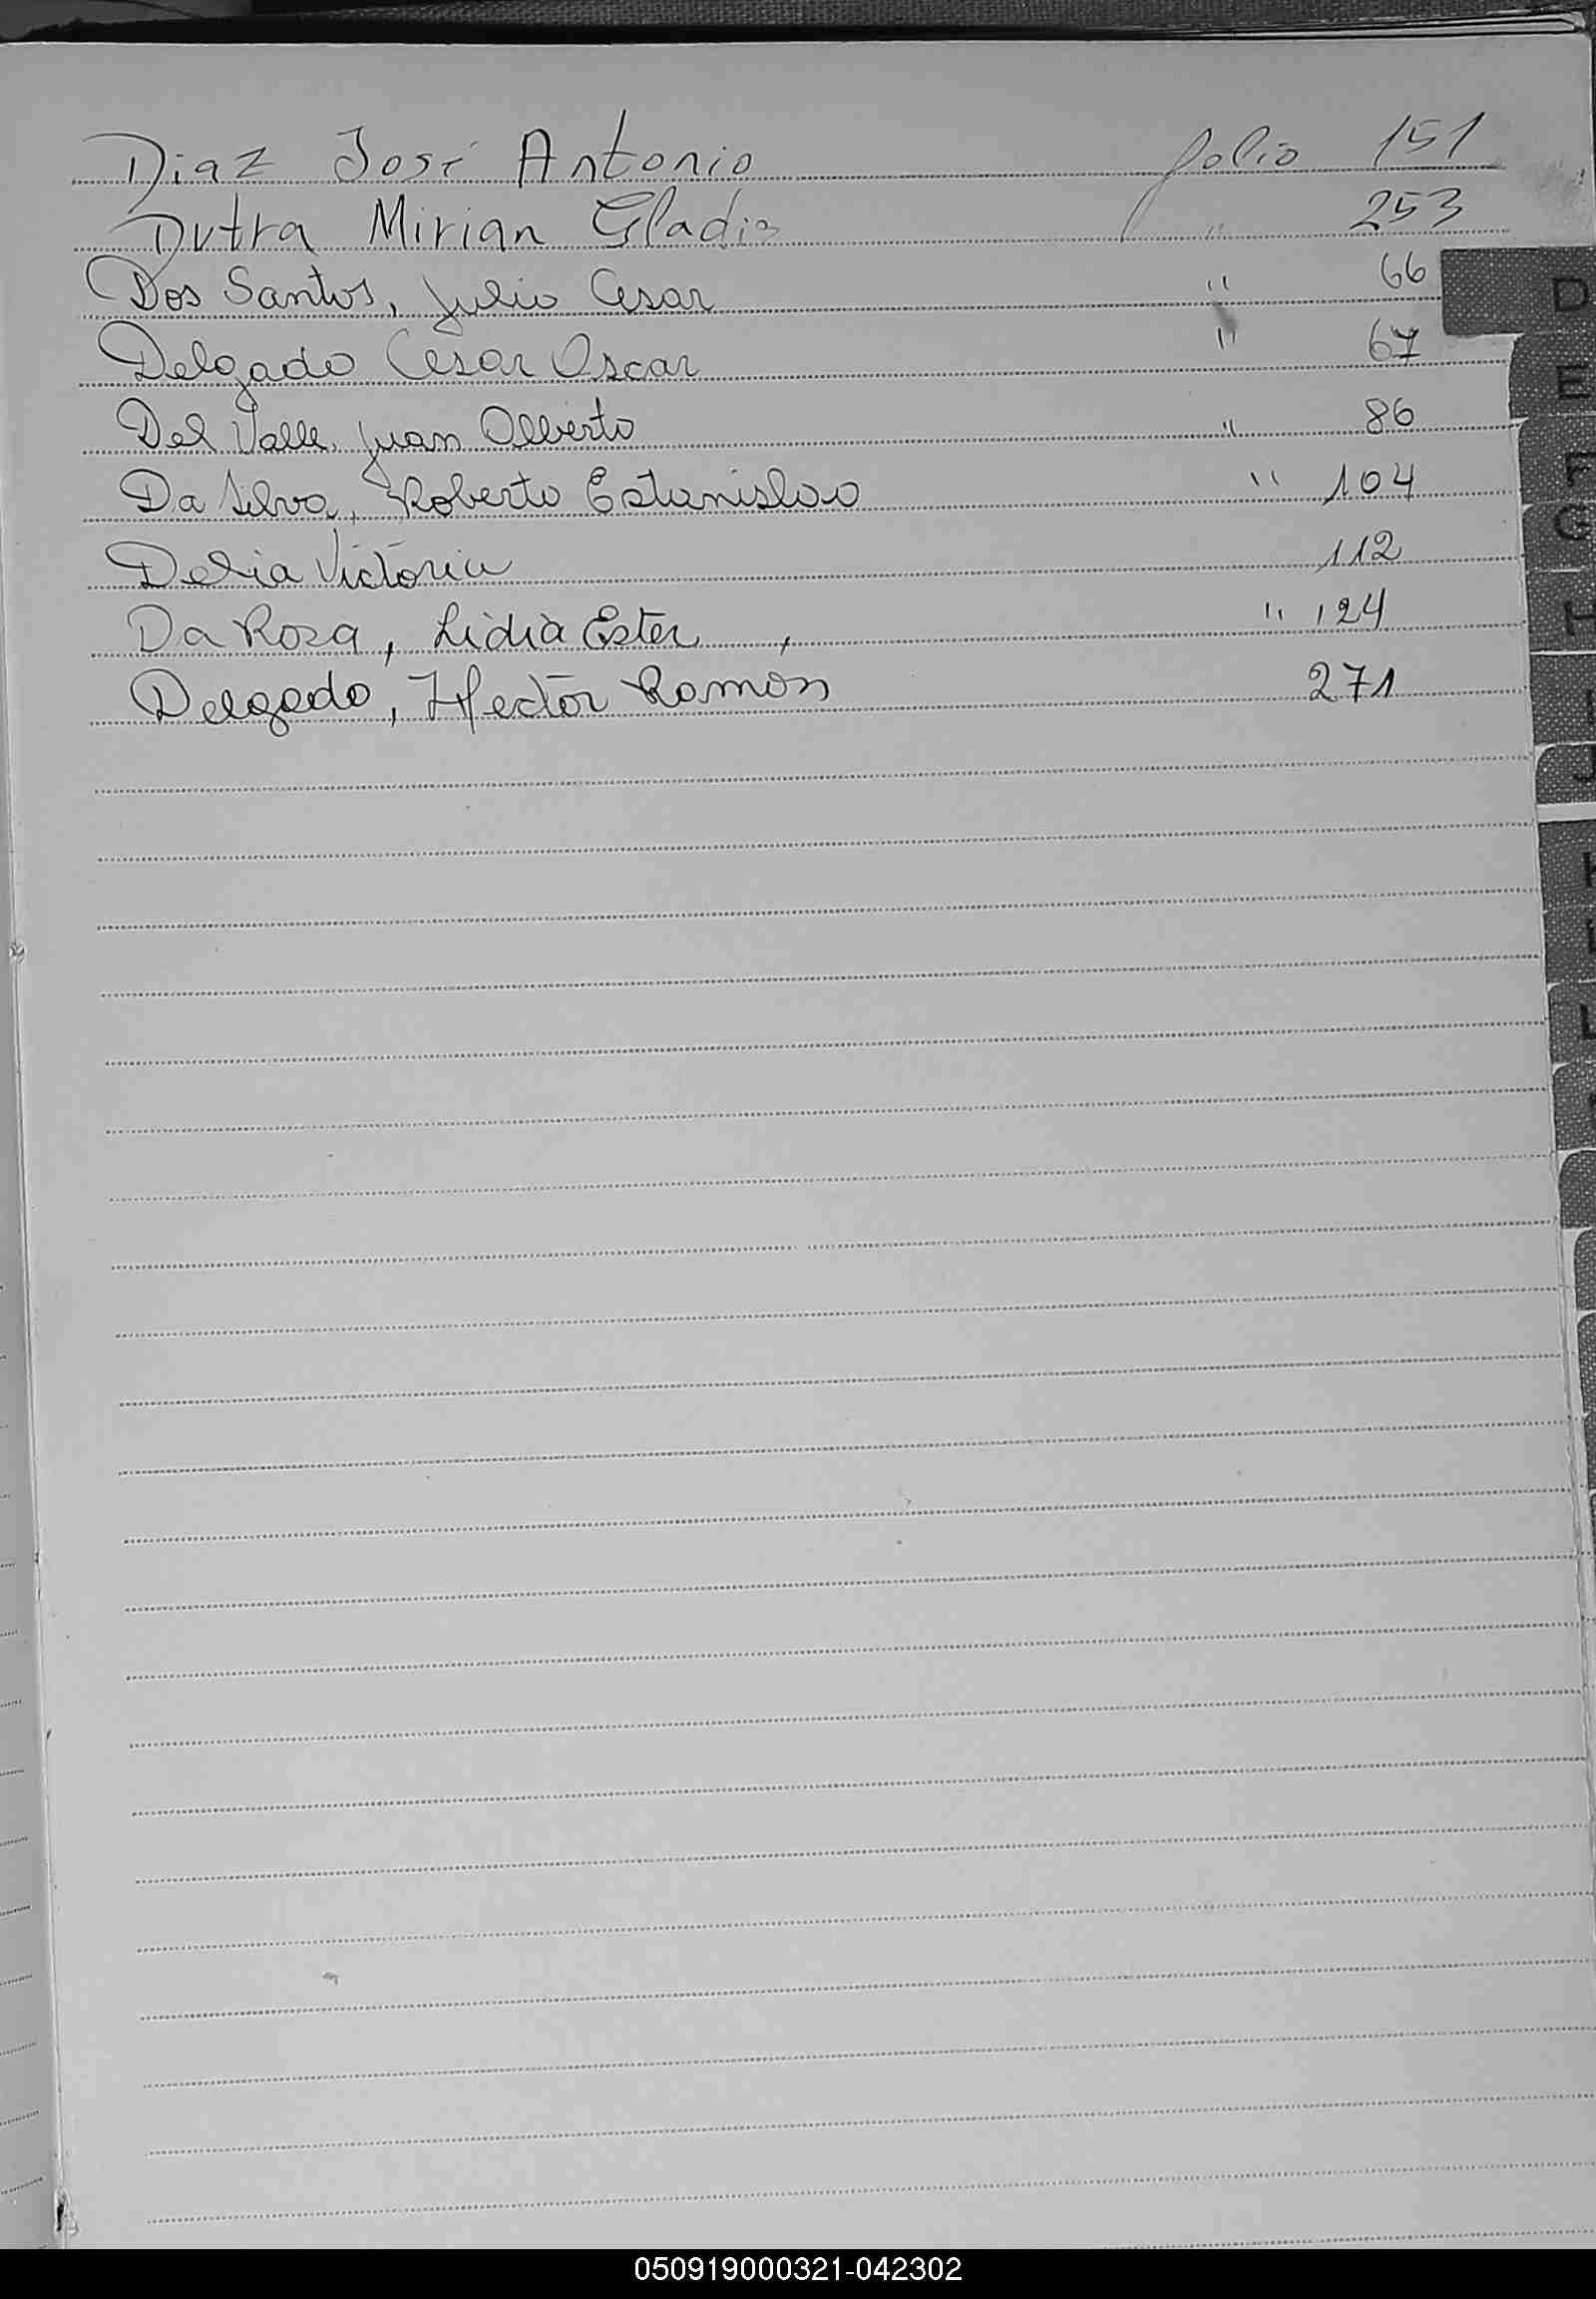 Diaz José Antonio folio 151
Dutra Mirian Gladis " 253
Dos Santos, Julio Cesar " 66
Delgado Cesar Oscar " 67
Del Valle, Juan Alberto " 86
Da Silva, Roberto Estanislao " 104
Delia Victoria 112
Da Rosa, Lidia Ester , " 124
Delgado, Hector Ramón 271
D
E
F
G
H
I
J
K
L
050919000321-042302